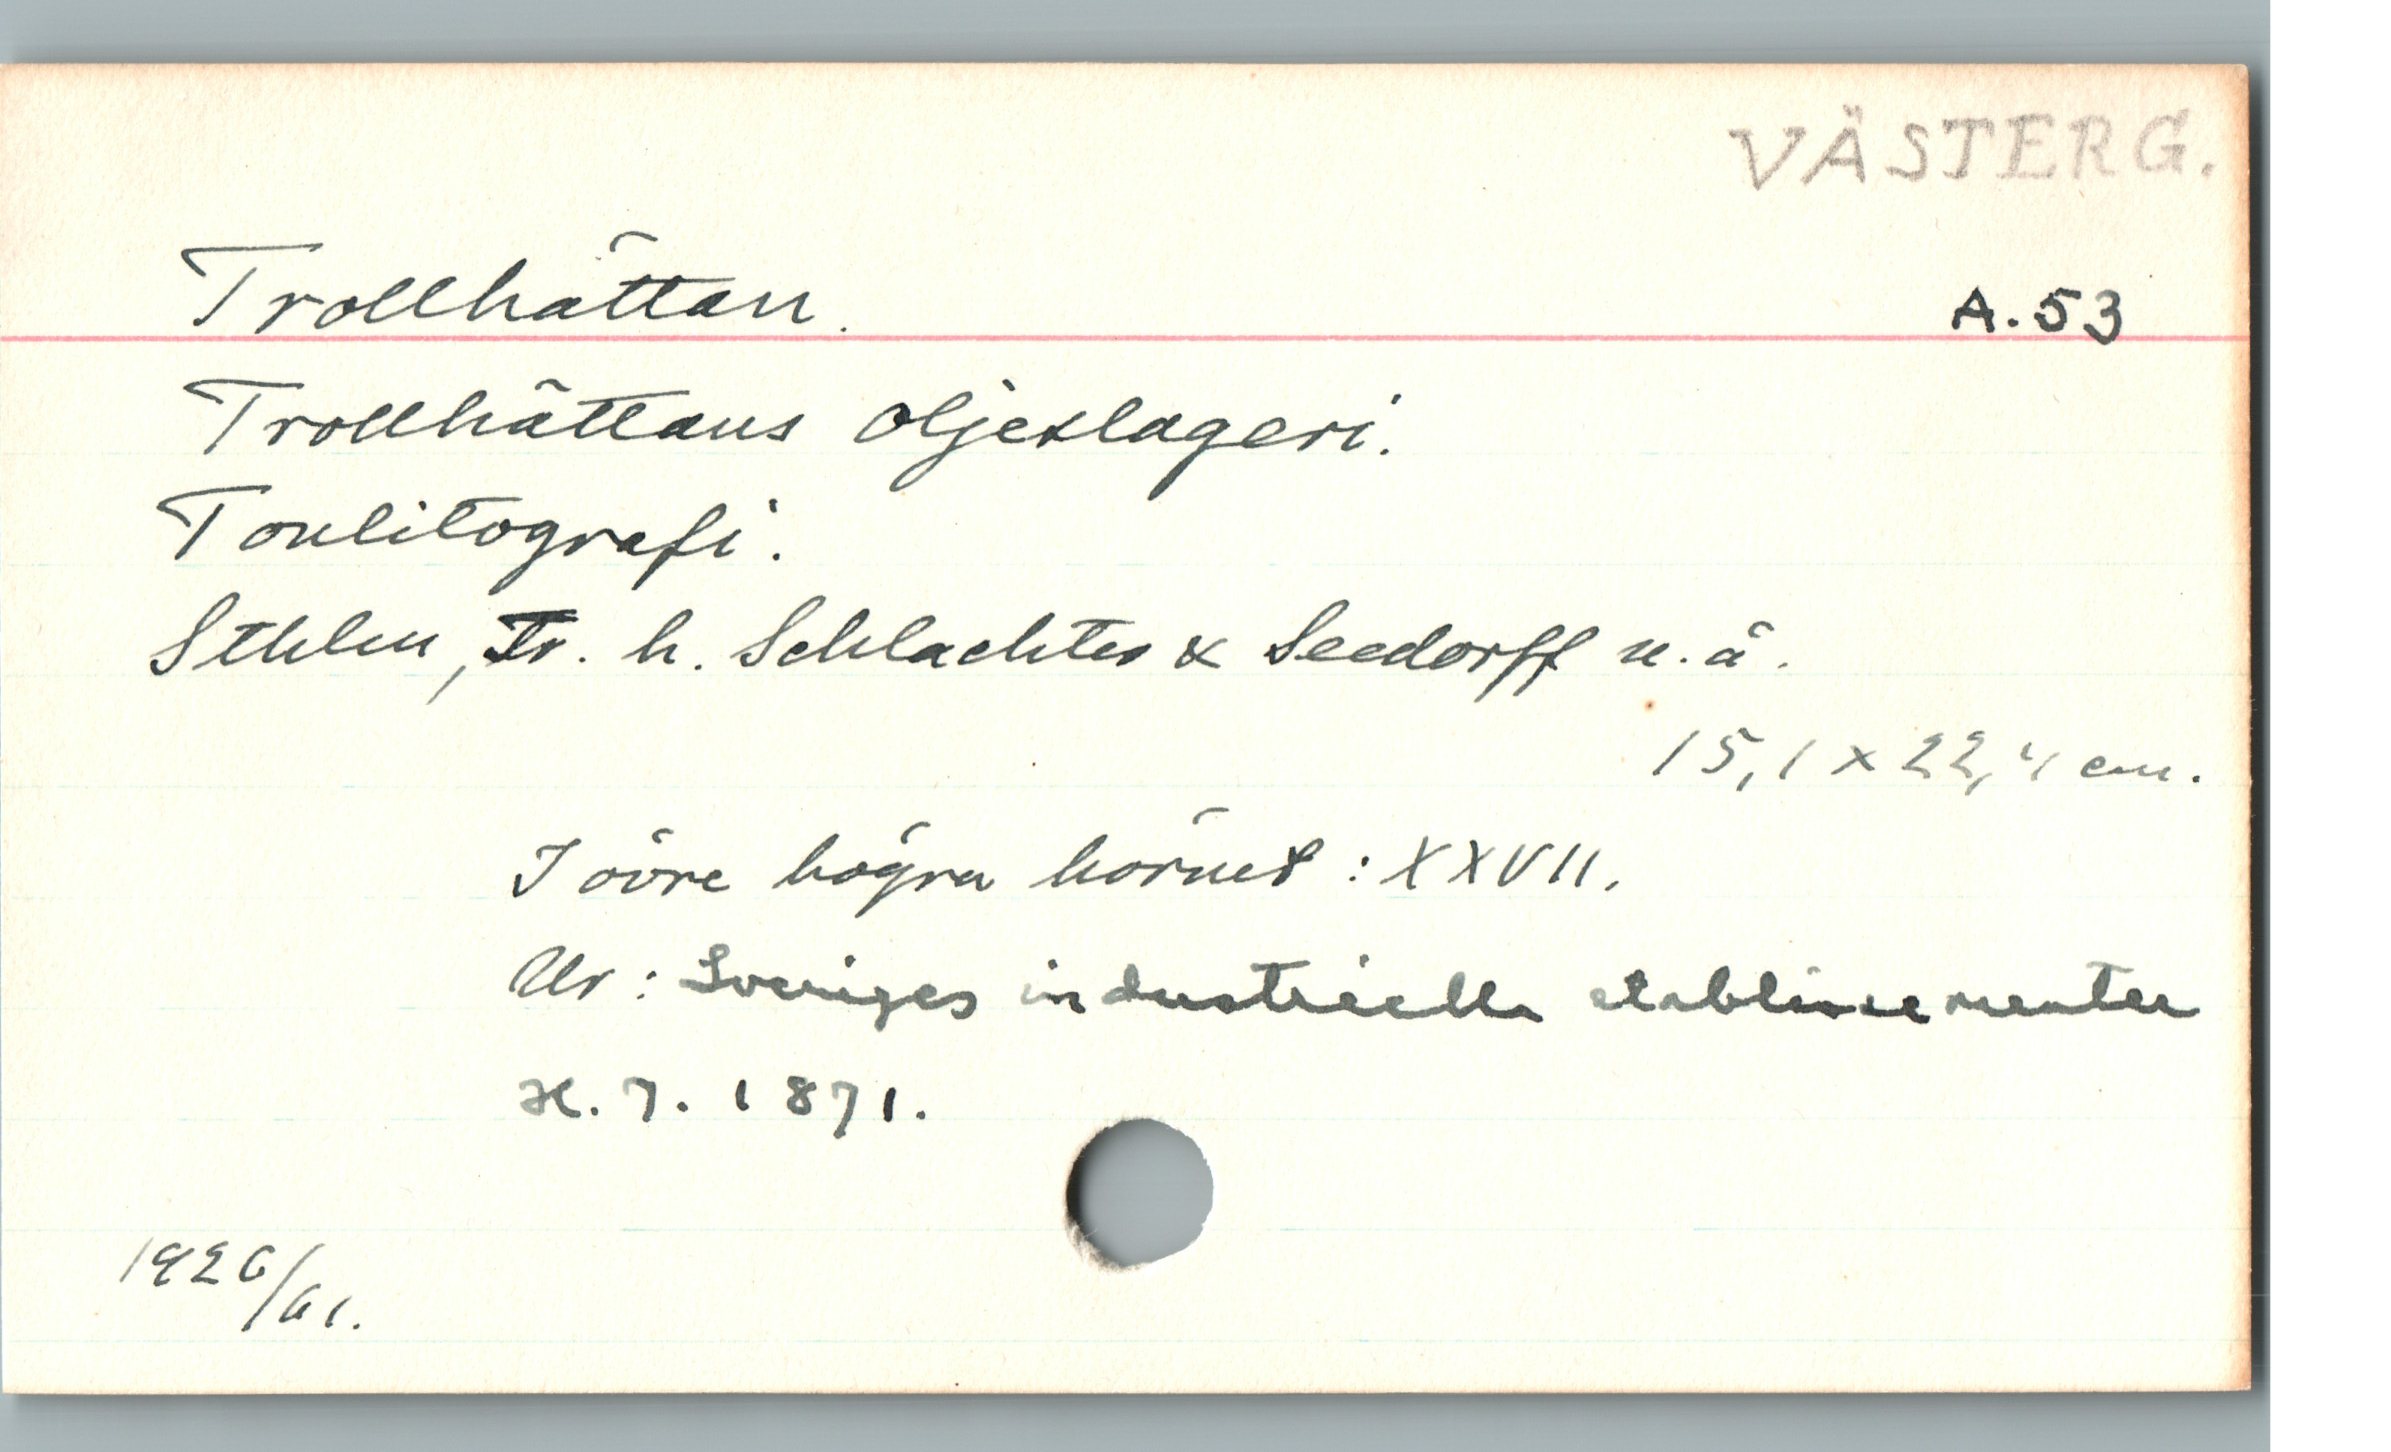 VÄSTERG.
Trollhättan.
A. 53
Trollhättans oljeslageri.
Tonlitografi.
Sthlm, Tr. h. Schlachter & Seedorff u. å.
15,1 x 22,4 cm.
I övre högra hörnet: XXVII.
Ur: Sveriges industriella etablissementer
H. 7. 1871.
1926/61.